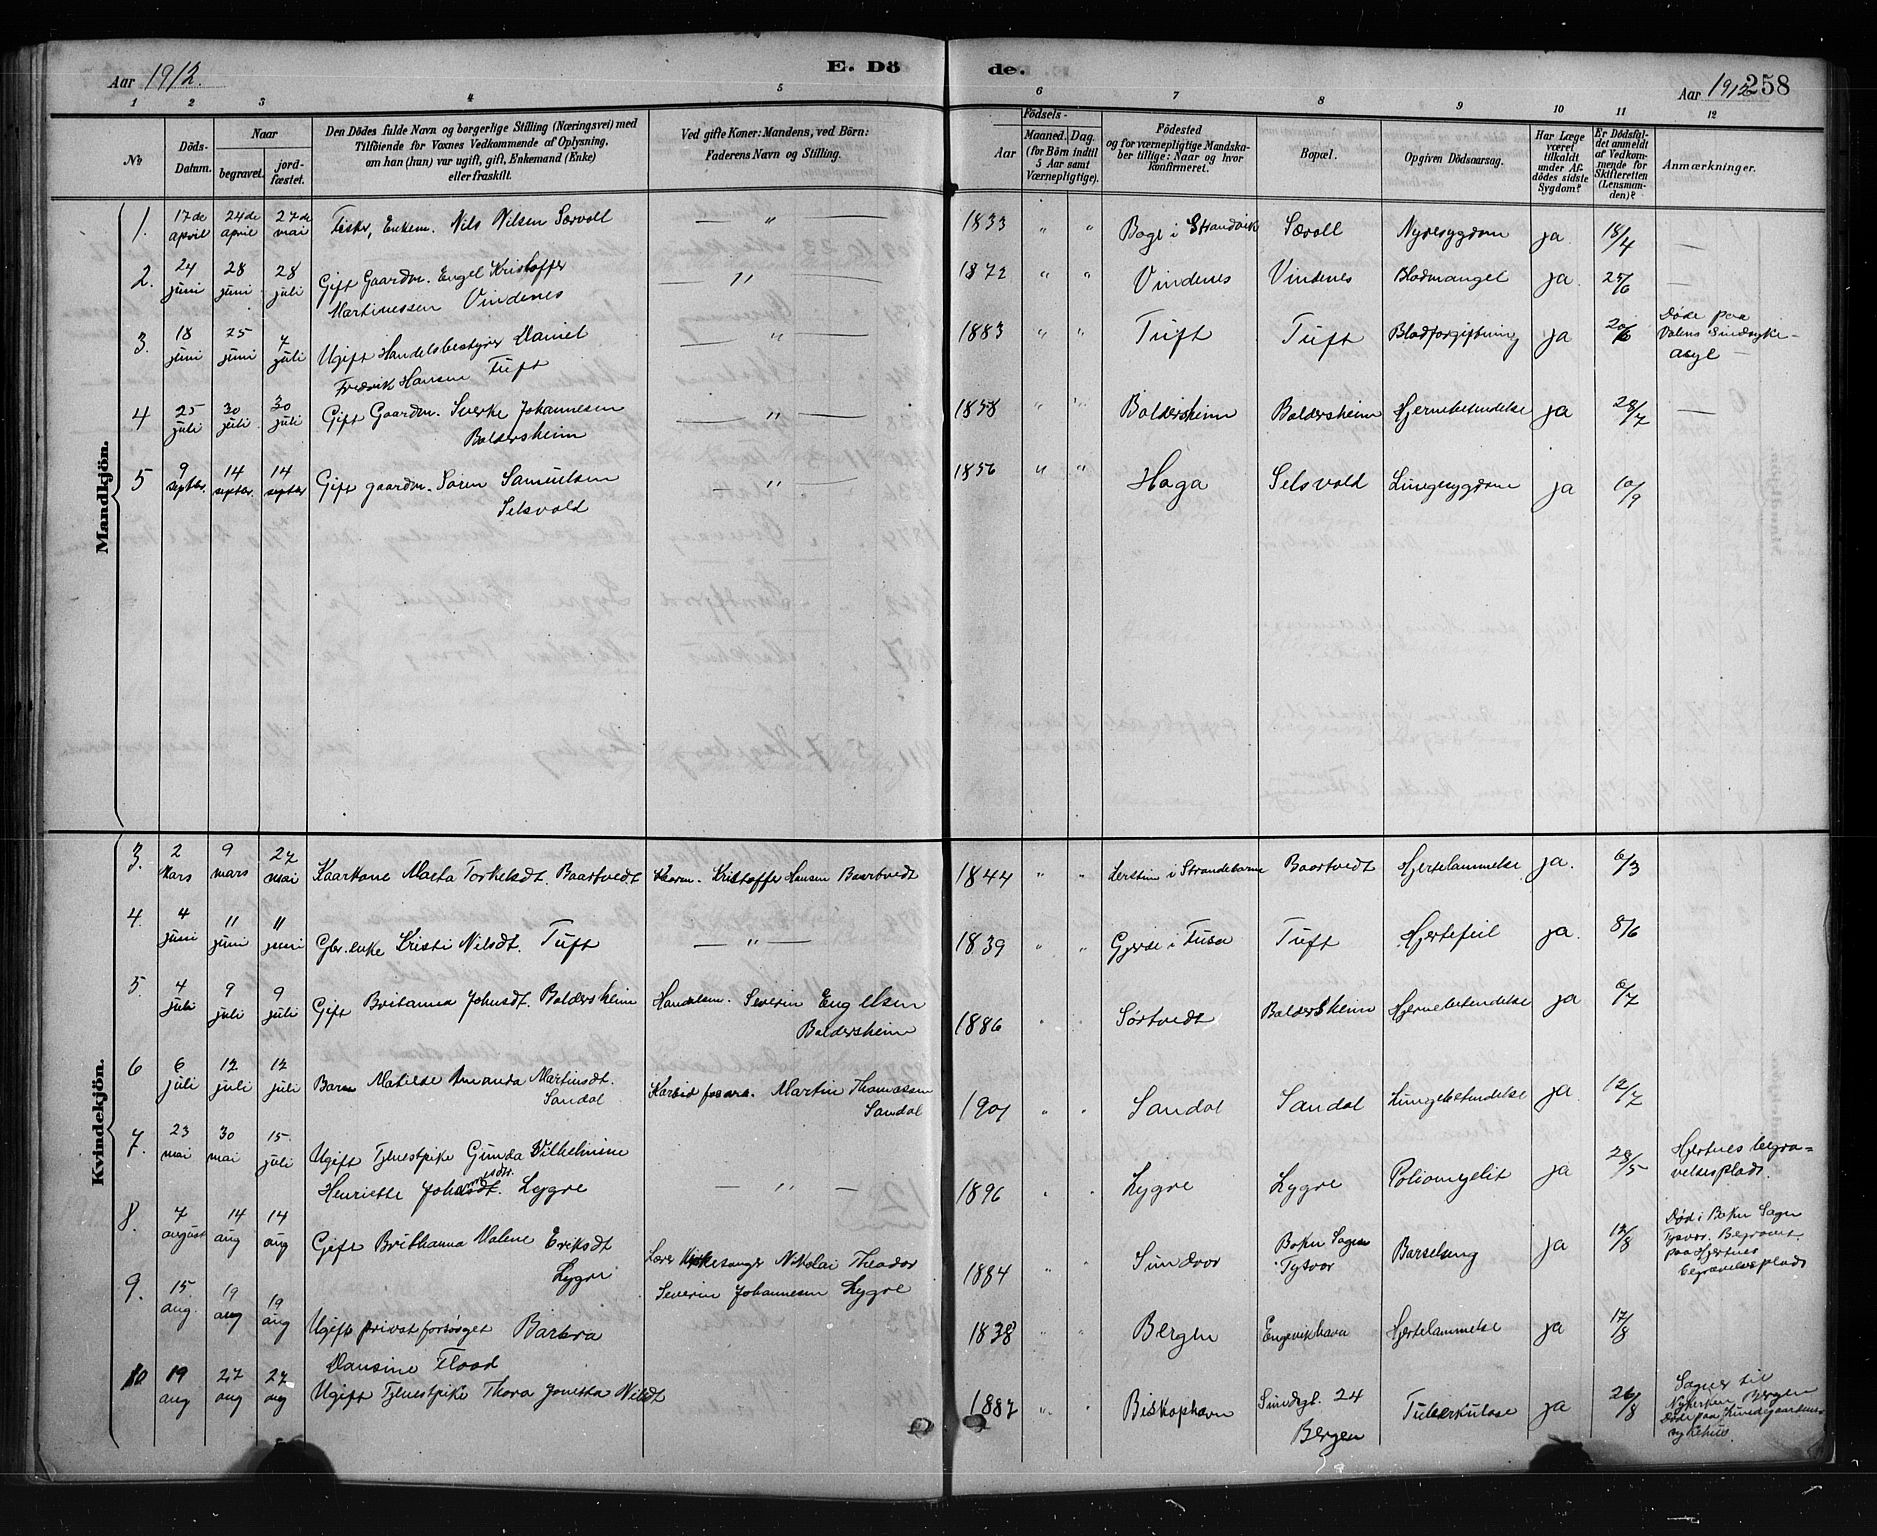 Aar 1912. E. Dö de. Aar 1912 258
1 2 3 4 5 6 7 8 9 10 11 12
№
Döds-Datum.
Naar
begravet.
jordfæstet.
Den Dödes fulde Navn og borgerlige Stilling (Næringsvei) med
Tilföiende for Voxnes Vedkommende af Oplysning,
om han (hun) var ugift, gift, Enkemand (Enke)
eller fraskilt.
Ved gifte Koner: Mandens, ved Börn:
Faderens Navn og Stilling.
Födsels-
Aar
Maaned. Dag.
(for Börn indtil
5 Aar samt
Værnepligtige).
Födested
og for værnepligtige Mandska-
ber tillige: Naar og hvor
konfirmeret.
Bopæl.
Opgiven Dödsaarsag.
Har Læge
været
tilkaldt
under Af-
dödes sidste
Sygdom?
Er Dödsfal-
det anmeldt
af Vedkom-
mende for
Skifteretten
(Lensman-
den)?
Anmærkninger.
Mandkjön.
1. 17de april 24de april 27de mai Fisker, Enkem. Nils Nilsen Sævoll — " — 1833 " " Boge i Strandvik Sævoll Nyresygdom ja 18/4 —
2. 24 juni 28 juni 28 juli Gift Gaardm. Engel Kristoffer
Martinussen Vindenes — " — 1872 " " Vindenes Vindenes Blodmangel ja 25/6 —
3. 18 juni 25 juni 7 juli Ugift Handelsbestyrer Daniel
Fredrik Hansen Tuft — " — 1883 " " Tuft Tuft Blodforgiftning ja 20/6 Døde paa
Valens Sindsyke-
asyl —
4 25 juli 30 juli 30 juli Gift Gaardm. Sverke Johannesen
Baldersheim — " — 1858 " " Baldersheim Baldersheim Hjernebetendelse ja 28/7 —
5 9 septbr. 14 septbr. 14 septbr Gift gaardm. Søren Samuelsen
Selsvold — " — 1856 " " Haga Selsvold Lungesygdom ja 10/9
Kvindekjön.
3. 2 Mars 9 mars 27 mai Kaarkone Marta Torkelsdt. Baartvedt Kaarm. Kristoffer Hansen Baartvedt 1844 " " i Strandebarm Baartvedt Hjertelammelse ja. 6/3
4. 4 juni 11 juni 11 juni Gbr. enke Kristi Nilsdt. Tuft — " — 1839 " " Gjerde i Fusa Tuft Hjertefeil ja. 8/6
5. 4 juli 9 juli 9 juli Gift Britanna Johnsdt. Baldersheim Handelsm. Severin Engelsen
Baldersheim 1886 " " Sørtvedt Baldersheim Hjernebetendelse ja 6/7
6 6 juli 12 juli 12 juli Barn Matilde Amanda Martinsdt.
Sandal Martin Thomassen
Sandal 1901 " " Sandal Sandal Lungebetendelse ja. 12/7
7. 23 mai 30 mai 15. juli Ugift Tjenestpike Gunda Vilhelmine
Henriette Johannesdtr. Lygre — " — 1896 " " Lygre Lygre Poliomyelit ja 28/5 Hjertnes begra-
velsesplads.
8. 7 august 14 aug 14 aug Gift Brithanna Malene Eriksdt
Lygre Lærer Kirkesanger Nikolai Theodor
Severin Johannesen Lygre 1884 " " Sundvor Bokn Sogn
Tysvær Barselseng ja 13/8 Død i Bokn Sogn
Tysvær. Begravet
paa Hjertnes
begravelsesplads
9. 15 aug. 19 aug 19 aug Ugift privat forsørget Barbra
Dansine Flood 1838 " " Bergen Engevikhavn Hjertelammelse ja 17/8
10 19 aug 27 aug 27 aug Ugift Tjenestpike Thora Jonetta Nilsdt 1887 " " Biskophavn Sundsgt. 24
Bergen Tuberkulose ja 26/8 Sogner til
Nykirken Bergen
Døde paa Lungegaardens
sykehus.